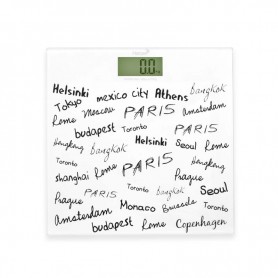 0.0
Helsinki mexico city Athens
Tokyo Moscow PARIS Bangkok
Rome Amsterdam
budapest Toronto Rome
Hongkong Helsinki Seoul
Toronto PARIS Bangkok
shanghai Rome Toronto
Prague PARIS bangkok Seoul
Toronto
Prague
Amsterdam Monaco Brussels Toronto
budapest Rome Copenhagen